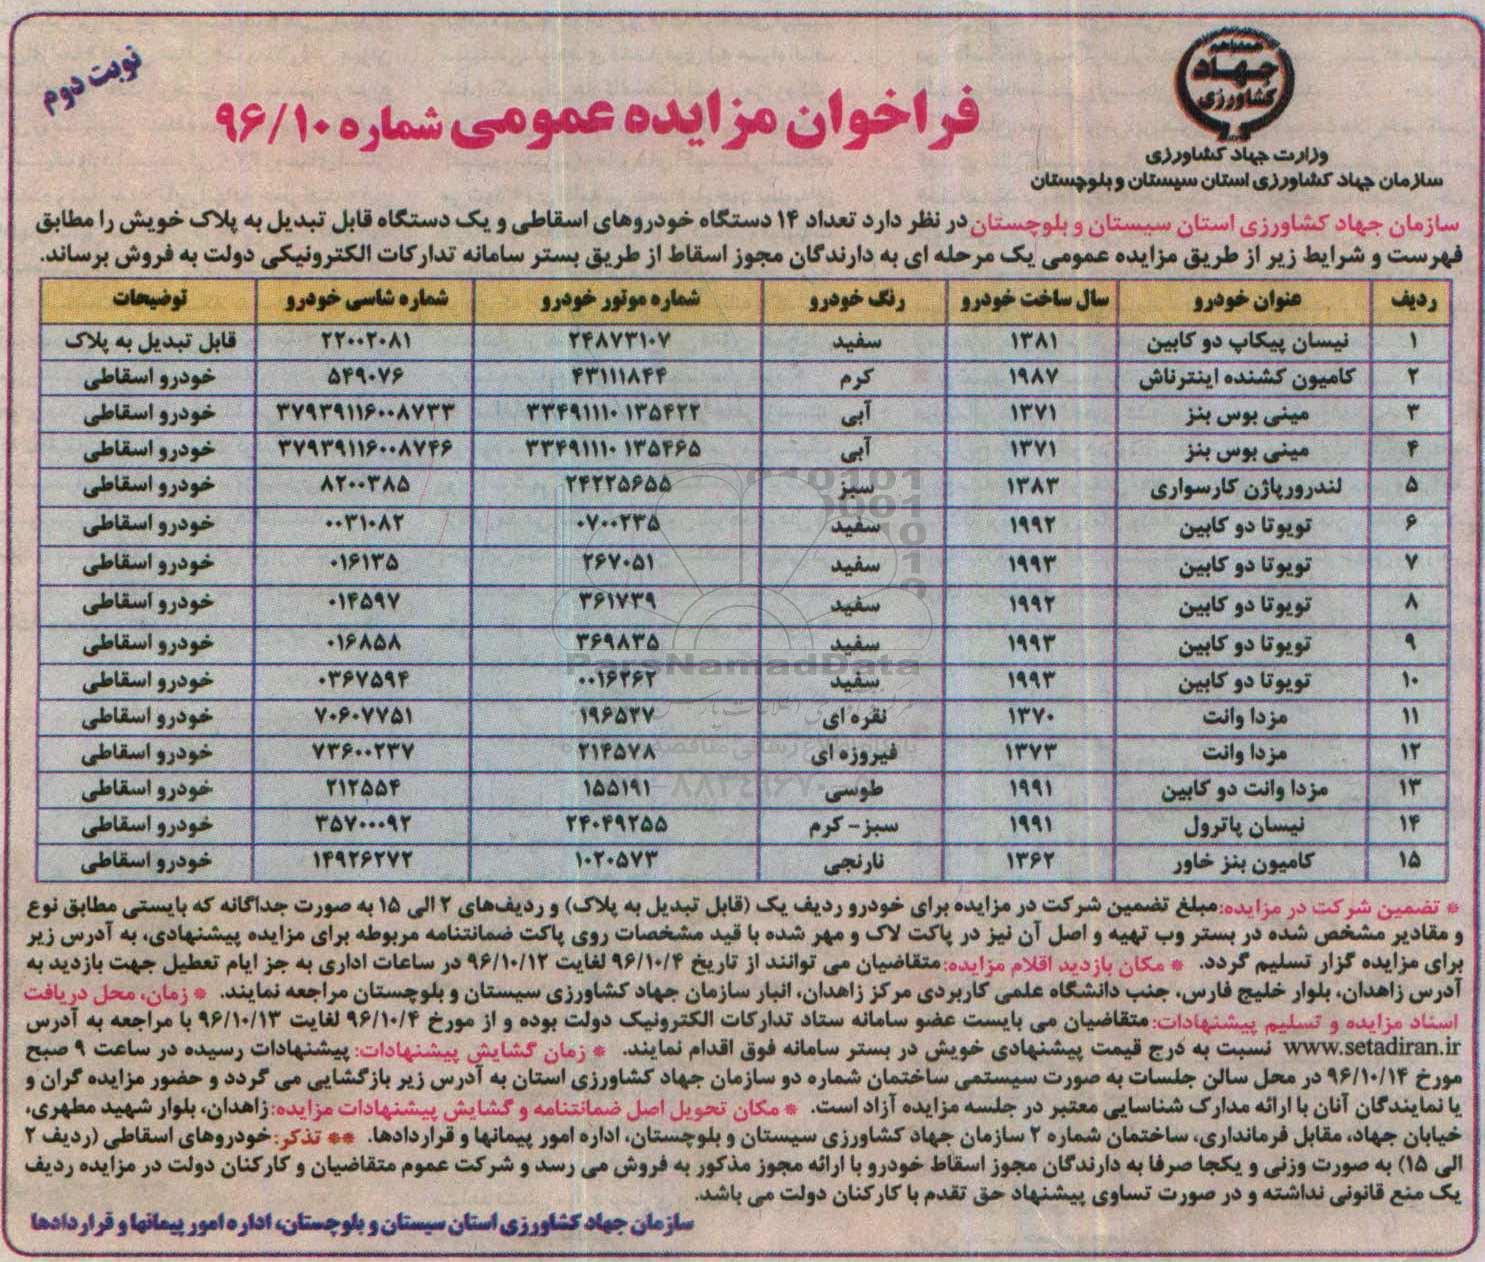 نوبت دوم
جهاد
کشاورزی
وزارت جهاد کشاورزی
سازمان جهاد کشاورزی استان سیستان و بلوچستان
فراخوان مزایده عمومی شماره ۹۶/۱۰
سازمان جهاد کشاورزی استان سیستان و بلوچستان در نظر دارد تعداد ۱۴ دستگاه خودروهای اسقاطی و یک دستگاه قابل تبدیل به پلاک خویش را مطابق
فهرست و شرایط زیر از طریق مزایده عمومی یک مرحله ای به دارندگان مجوز اسقاط از طریق بستر سامانه تدارکات الکترونیکی دولت به فروش برساند.
ردیف عنوان خودرو سال ساخت خودرو رنگ خودرو شماره موتور خودرو شماره شاسی خودرو توضیحات
۱ نیسان پیکاپ دو کابین ۱۳۸۱ سفید ۲۴۸۷۳۱۰۷ ۲۲۰۰۲۰۸۱ قابل تبدیل به پلاک
۲ کامیون کشنده اینترناش ۱۹۸۷ کرم ۴۳۱۱۱۸۴۴ ۵۴۹۰۷۶ خودرو اسقاطی
۳ مینی بوس بنز ۱۳۷۱ آبی ۳۳۴۹۱۱۱۰۱۳۵۴۲۲ ۳۷۹۳۹۱۱۶۰۰۸۷۳۳ خودرو اسقاطی
۴ مینی بوس بنز ۱۳۷۱ آبی ۳۳۴۹۱۱۱۰۱۳۵۴۶۵ ۳۷۹۳۹۱۱۶۰۰۸۷۴۶ خودرو اسقاطی
۵ لندرورپاژن کارسواری ۱۳۸۳ سبز ۲۴۲۲۵۶۵۵ ۸۲۰۰۳۸۵ خودرو اسقاطی
۶ تویوتا دو کابین ۱۹۹۲ سفید ۰۷۰۰۲۳۵ ۰۰۳۱۰۸۲ خودرو اسقاطی
۷ تویوتا دو کابین ۱۹۹۳ سفید ۲۶۷۰۵۱ ۰۱۶۱۳۵ خودرو اسقاطی
۸ تویوتا دو کابین ۱۹۹۲ سفید ۳۶۱۷۳۹ ۰۱۴۵۹۷ خودرو اسقاطی
۹ تویوتا دو کابین ۱۹۹۳ سفید ۳۶۹۸۳۵ ۰۱۶۸۵۸ خودرو اسقاطی
۱۰ تویوتا دو کابین ۱۹۹۳ سفید ۰۰۱۶۲۶۲ ۰۳۶۷۵۹۴ خودرو اسقاطی
۱۱ مزدا وانت ۱۳۷۰ نقره ای ۱۹۶۵۲۷ ۷۰۶۰۷۷۵۱ خودرو اسقاطی
۱۲ مزدا وانت ۱۳۷۳ فیروزه ای ۲۱۴۵۷۸ ۷۳۶۰۰۲۳۷ خودرو اسقاطی
۱۳ مزدا وانت دو کابین ۱۹۹۱ طوسی ۱۵۵۱۹۱ ۲۱۲۵۵۴ خودرو اسقاطی
۱۴ نیسان پاترول ۱۹۹۱ سبز- کرم ۲۴۰۴۹۲۵۵ ۳۵۷۰۰۰۹۲ خودرو اسقاطی
۱۵ کامیون بنز خاور ۱۳۶۲ نارنجی ۱۰۲۰۵۷۳ ۱۴۹۲۶۲۷۲ خودرو اسقاطی
ParsNamadData
* تضمین شرکت در مزایده: مبلغ تضمین شرکت در مزایده برای خودرو ردیف یک (قابل تبدیل به پلاک) و ردیف‌های ۲ الی ۱۵ به صورت جداگانه که بایستی مطابق نوع
و مقادیر مشخص شده در بستر وب تهیه و اصل آن نیز در پاکت لاک و مهر شده با قید مشخصات روی پاکت ضمانتنامه مربوطه برای مزایده پیشنهادی، به آدرس زیر
برای مزایده گزار تسلیم گردد. * مکان بازدید اقلام مزایده: متقاضیان می توانند از تاریخ ۹۶/۱۰/۴ لغایت ۹۶/۱۰/۱۲ در ساعات اداری به جز ایام تعطیل جهت بازدید به
آدرس زاهدان، بلوار خلیج فارس، جنب دانشگاه علمی کاربردی مرکز زاهدان، انبار سازمان جهاد کشاورزی سیستان و بلوچستان مراجعه نمایند. * زمان، محل دریافت
اسناد مزایده و تسلیم پیشنهادات: متقاضیان می بایست عضو سامانه ستاد تدارکات الکترونیک دولت بوده و از مورخ ۹۶/۱۰/۴ لغایت ۹۶/۱۰/۱۳ با مراجعه به آدرس
www.setadiran.ir نسبت به درج قیمت پیشنهادی خویش در بستر سامانه فوق اقدام نمایند. * زمان گشایش پیشنهادات: پیشنهادات رسیده در ساعت ۹ صبح
مورخ ۹۶/۱۰/۱۴ در محل سالن جلسات به صورت سیستمی ساختمان شماره دو سازمان جهاد کشاورزی استان به آدرس زیر بازگشایی می گردد و حضور مزایده گران و
یا نمایندگان آنان با ارائه مدارک شناسایی معتبر در جلسه مزایده آزاد است. * مکان تحویل اصل ضمانتنامه و گشایش پیشنهادات مزایده: زاهدان، بلوار شهید مطهری،
خیابان جهاد، مقابل فرمانداری، ساختمان شماره ۲ سازمان جهاد کشاورزی سیستان و بلوچستان، اداره امور پیمانها و قراردادها. ** تذکر: خودروهای اسقاطی (ردیف ۲
الی ۱۵) به صورت وزنی و یکجا صرفا به دارندگان مجوز اسقاط خودرو با ارائه مجوز مذکور به فروش می رسد و شرکت عموم متقاضیان و کارکنان دولت در مزایده ردیف
یک منع قانونی نداشته و در صورت تساوی پیشنهاد حق تقدم با کارکنان دولت می باشد.
سازمان جهاد کشاورزی استان سیستان و بلوچستان، اداره امور پیمانها و قراردادها